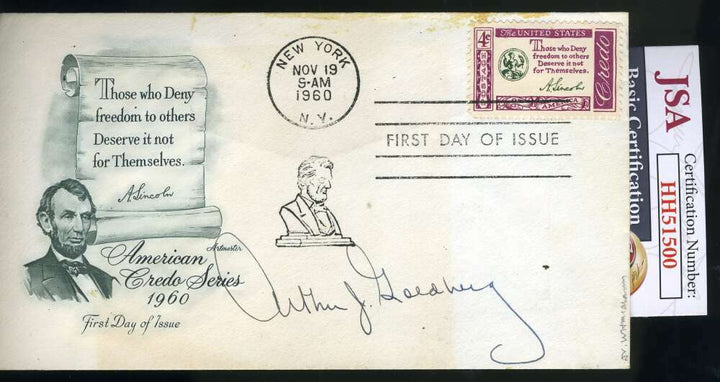 Those who Deny
freedom to others
Deserve it not
for Themselves.
A. Lincoln
Artmaster
American
Credo Series
1960
First Day of Issue
NEW YORK
NOV 19
9-AM
1960
N.Y.
FIRST DAY OF ISSUE
4¢
The UNITED STATES
Those who Deny
freedom to others
Deserve it not
for Themselves.
A. Lincoln
Credo
Arthur J. Goldberg
JSA
Basic Certification
Certification Number:
HH51500